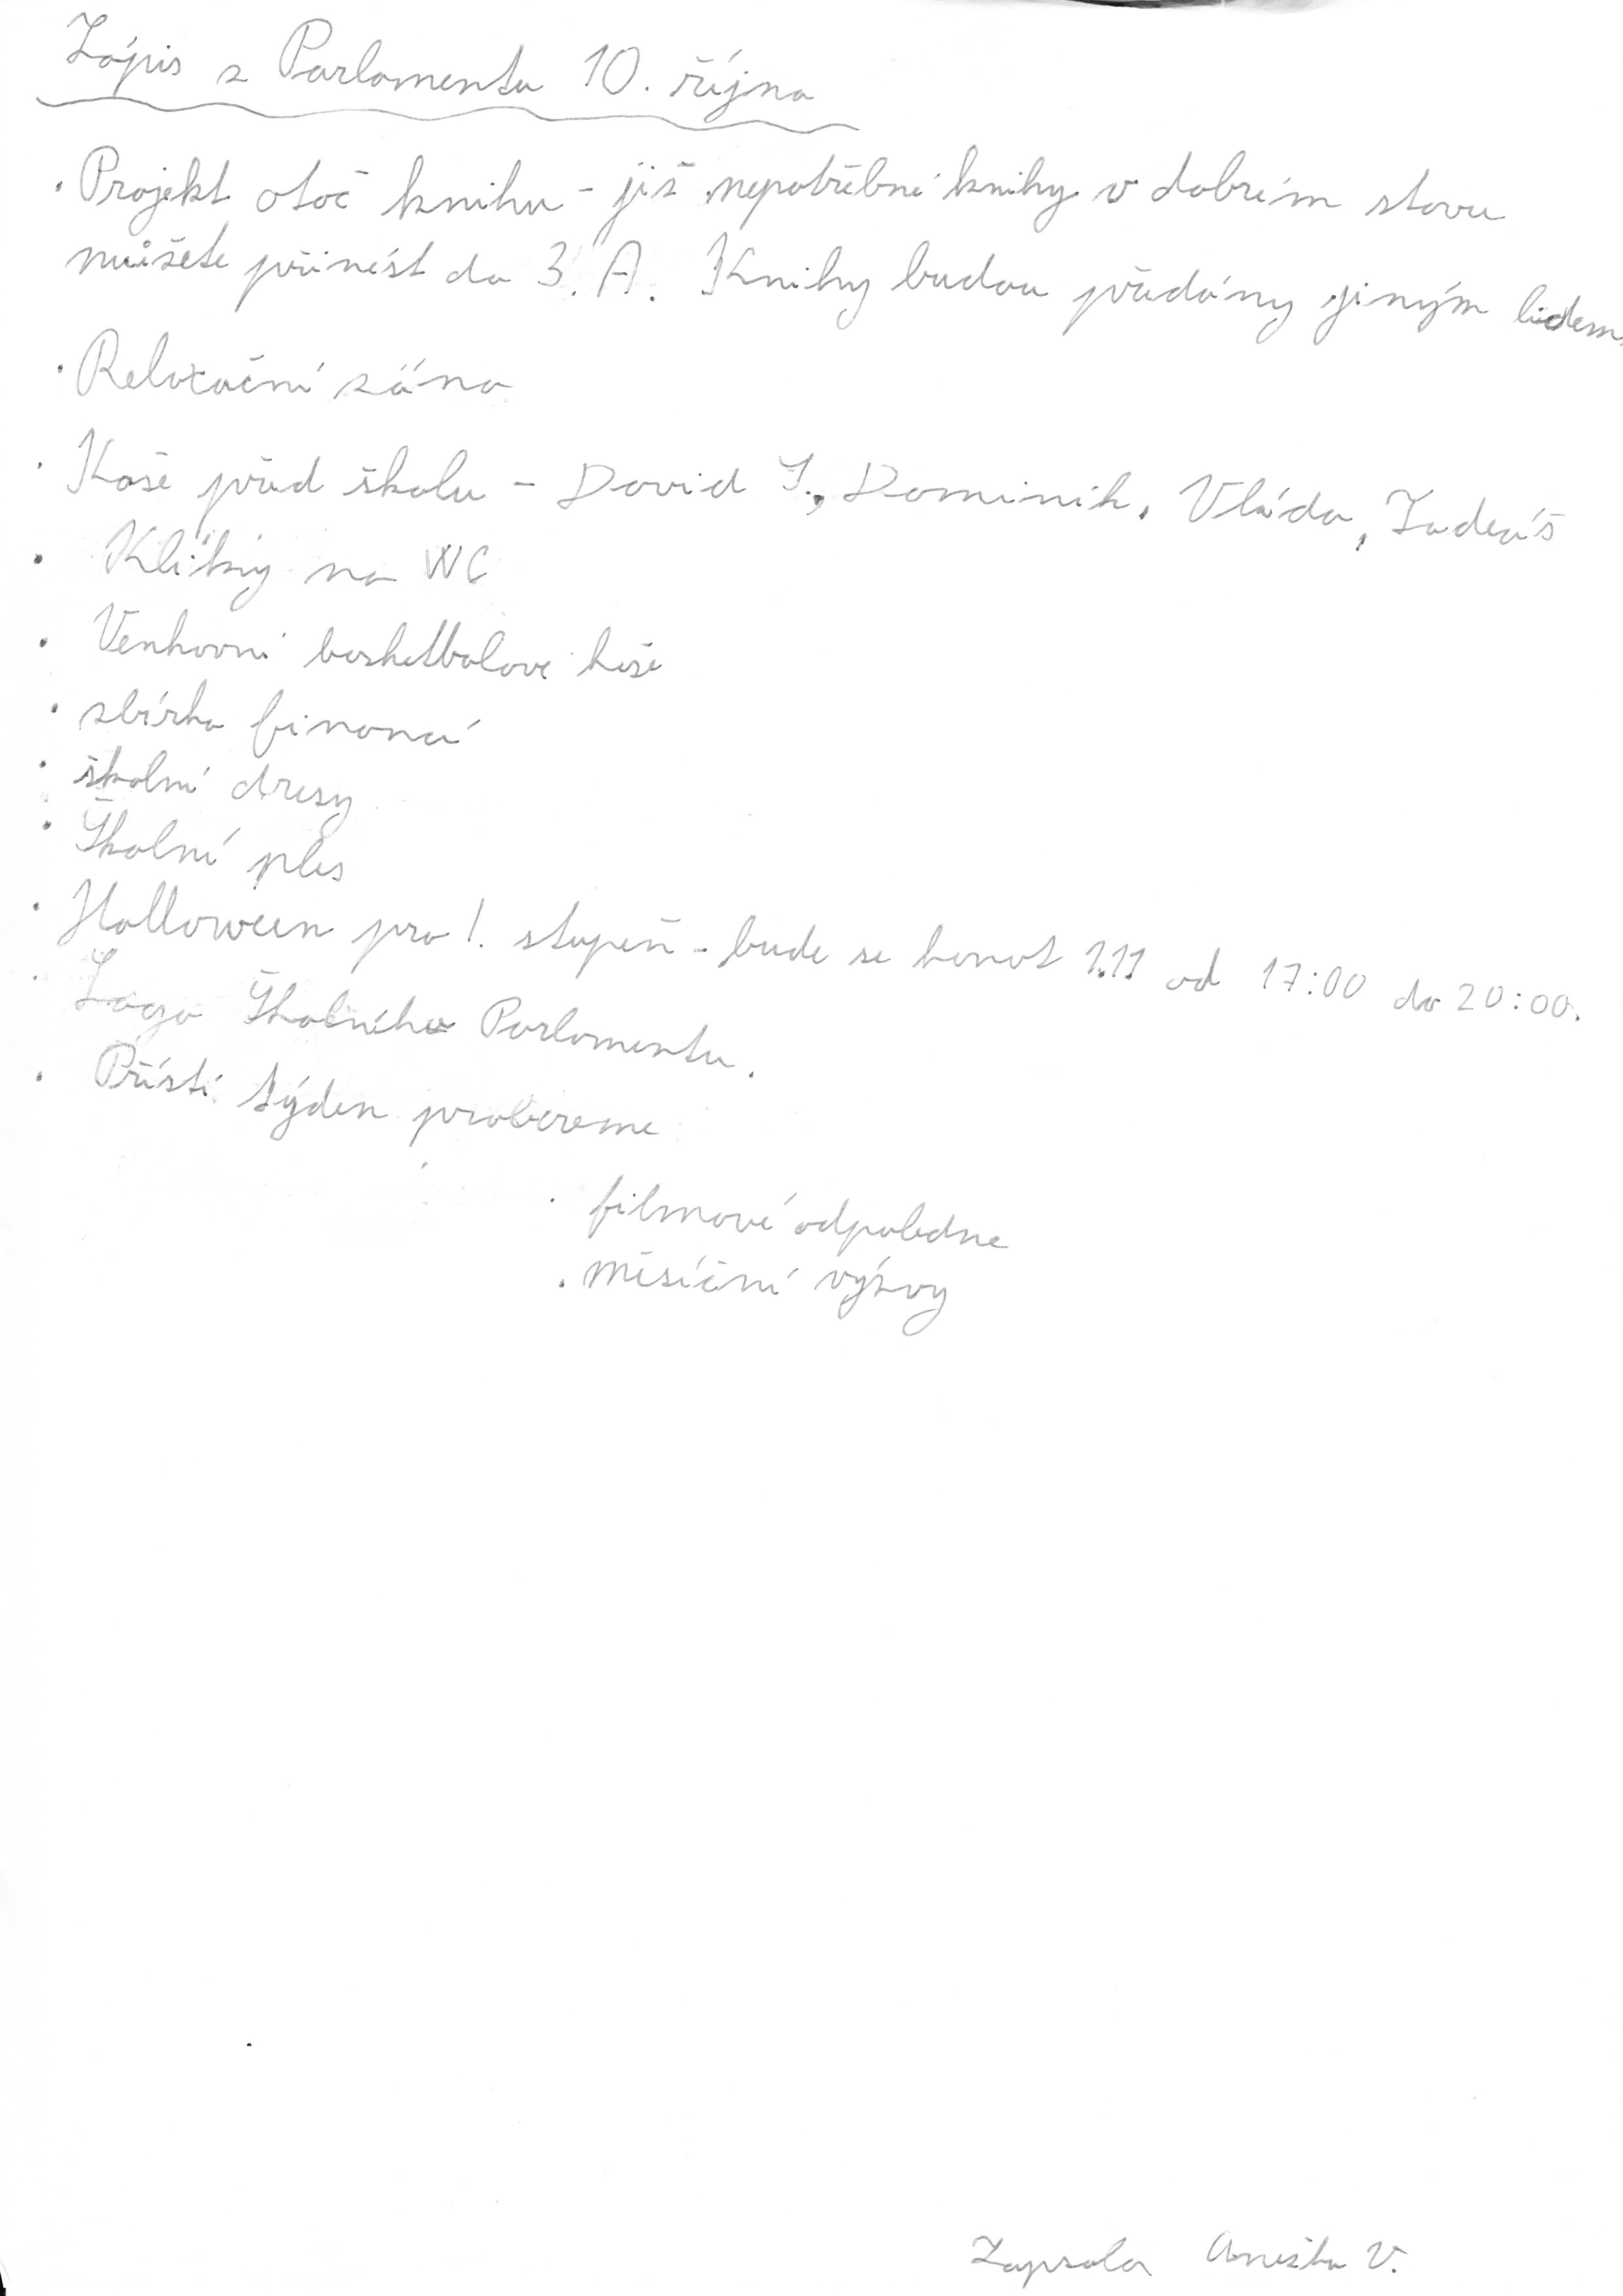 Zápis z Parlamentu 10. října
· Projekt otoč knihu - již nepotřebné knihy v dobrém stavu
můžete přinést do 3. A. Knihy budou předány jiným lidem.
· Relaxační zóna
· Koše před školu - David J., Dominik, Vláďa, Tadeáš
· Kliky na WC
· Venkovní basketbalové koše
· sbírka financí
· školní dresy
· Školní ples
· Halloween pro 1. stupeň - bude se konat 1.11 od 17:00 do 20:00.
· Logo Školního Parlamentu.
· Příští týden probereme
· filmové odpoledne
· měsíční výzvy
Zapsala Anežka V.